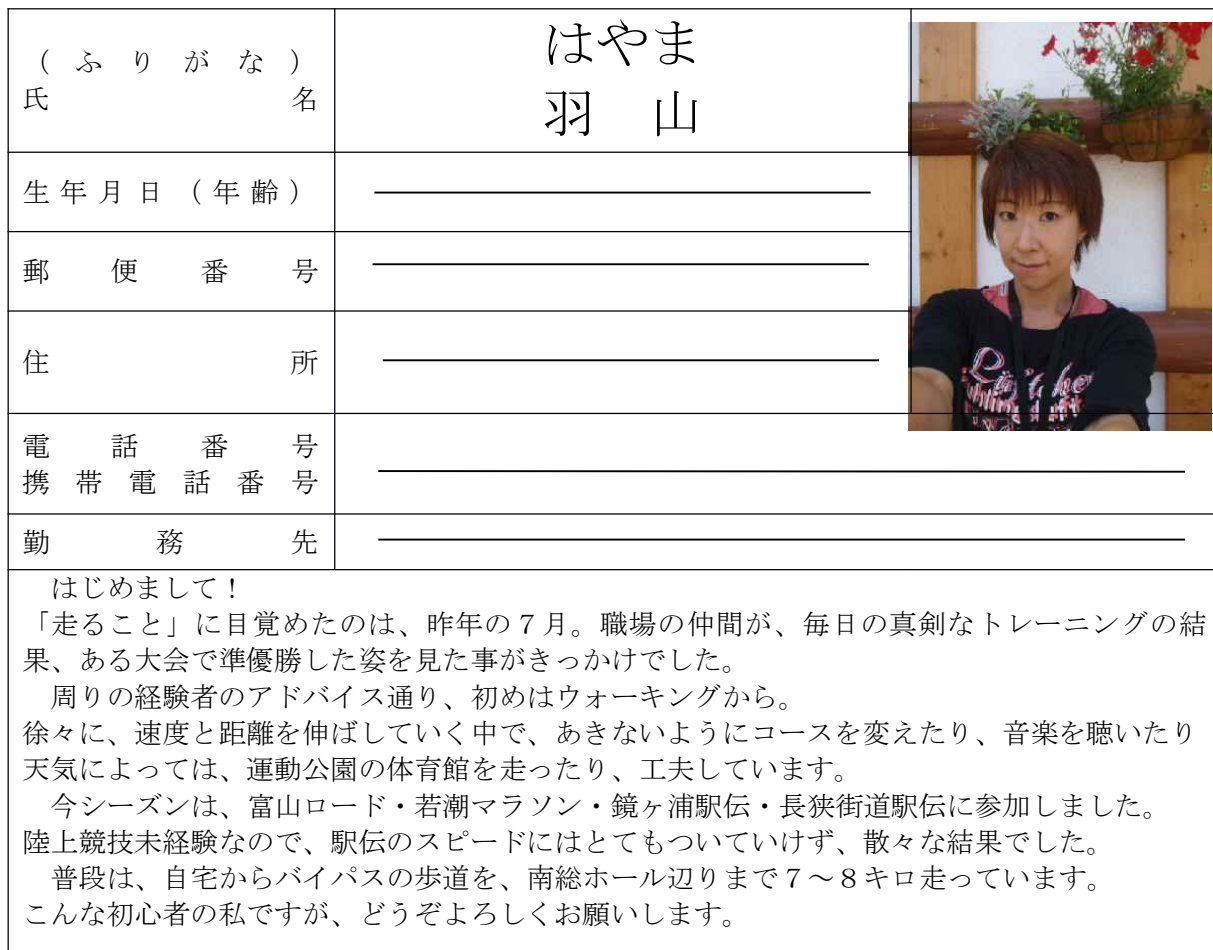 (ふりがな)
氏名
はやま
羽山
生年月日(年齢)
郵便番号
住所
電話番号
携帯電話番号
勤務先
はじめまして！
「走ること」に目覚めたのは、昨年の７月。職場の仲間が、毎日の真剣なトレーニングの結
果、ある大会で準優勝した姿を見た事がきっかけでした。
周りの経験者のアドバイス通り、初めはウォーキングから。
徐々に、速度と距離を伸ばしていく中で、あきないようにコースを変えたり、音楽を聴いたり
天気によっては、運動公園の体育館を走ったり、工夫しています。
今シーズンは、富山ロード・若潮マラソン・鏡ヶ浦駅伝・長狭街道駅伝に参加しました。
陸上競技未経験なので、駅伝のスピードにはとてもついていけず、散々な結果でした。
普段は、自宅からバイパスの歩道を、南総ホール辺りまで７～８キロ走っています。
こんな初心者の私ですが、どうぞよろしくお願いします。